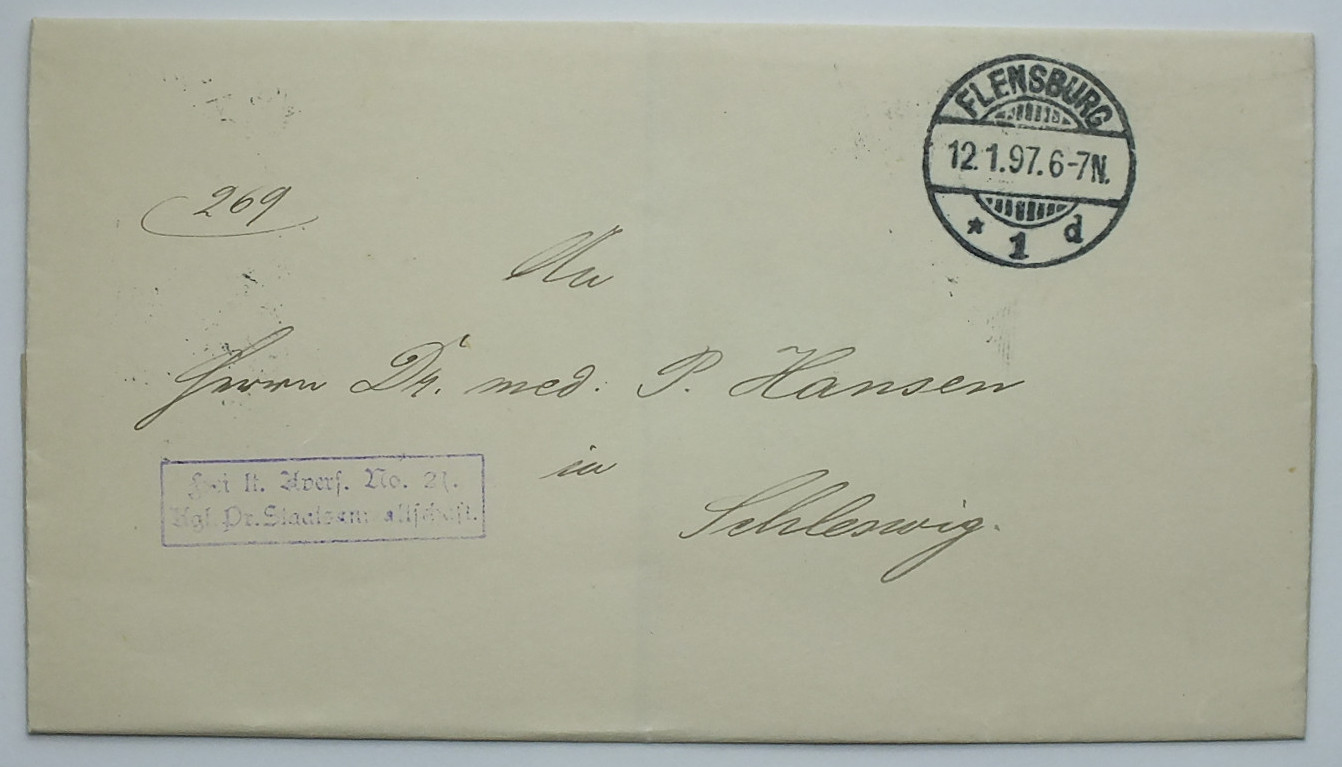 FLENSBURG
12.1.97.6-7N.
* 1 d
269
An
Herrn Dr. med. P. Hansen
in
Schleswig.
Frei lt. Avers. No. 21.
Kgl. Pr. Staatsanwaltschaft.